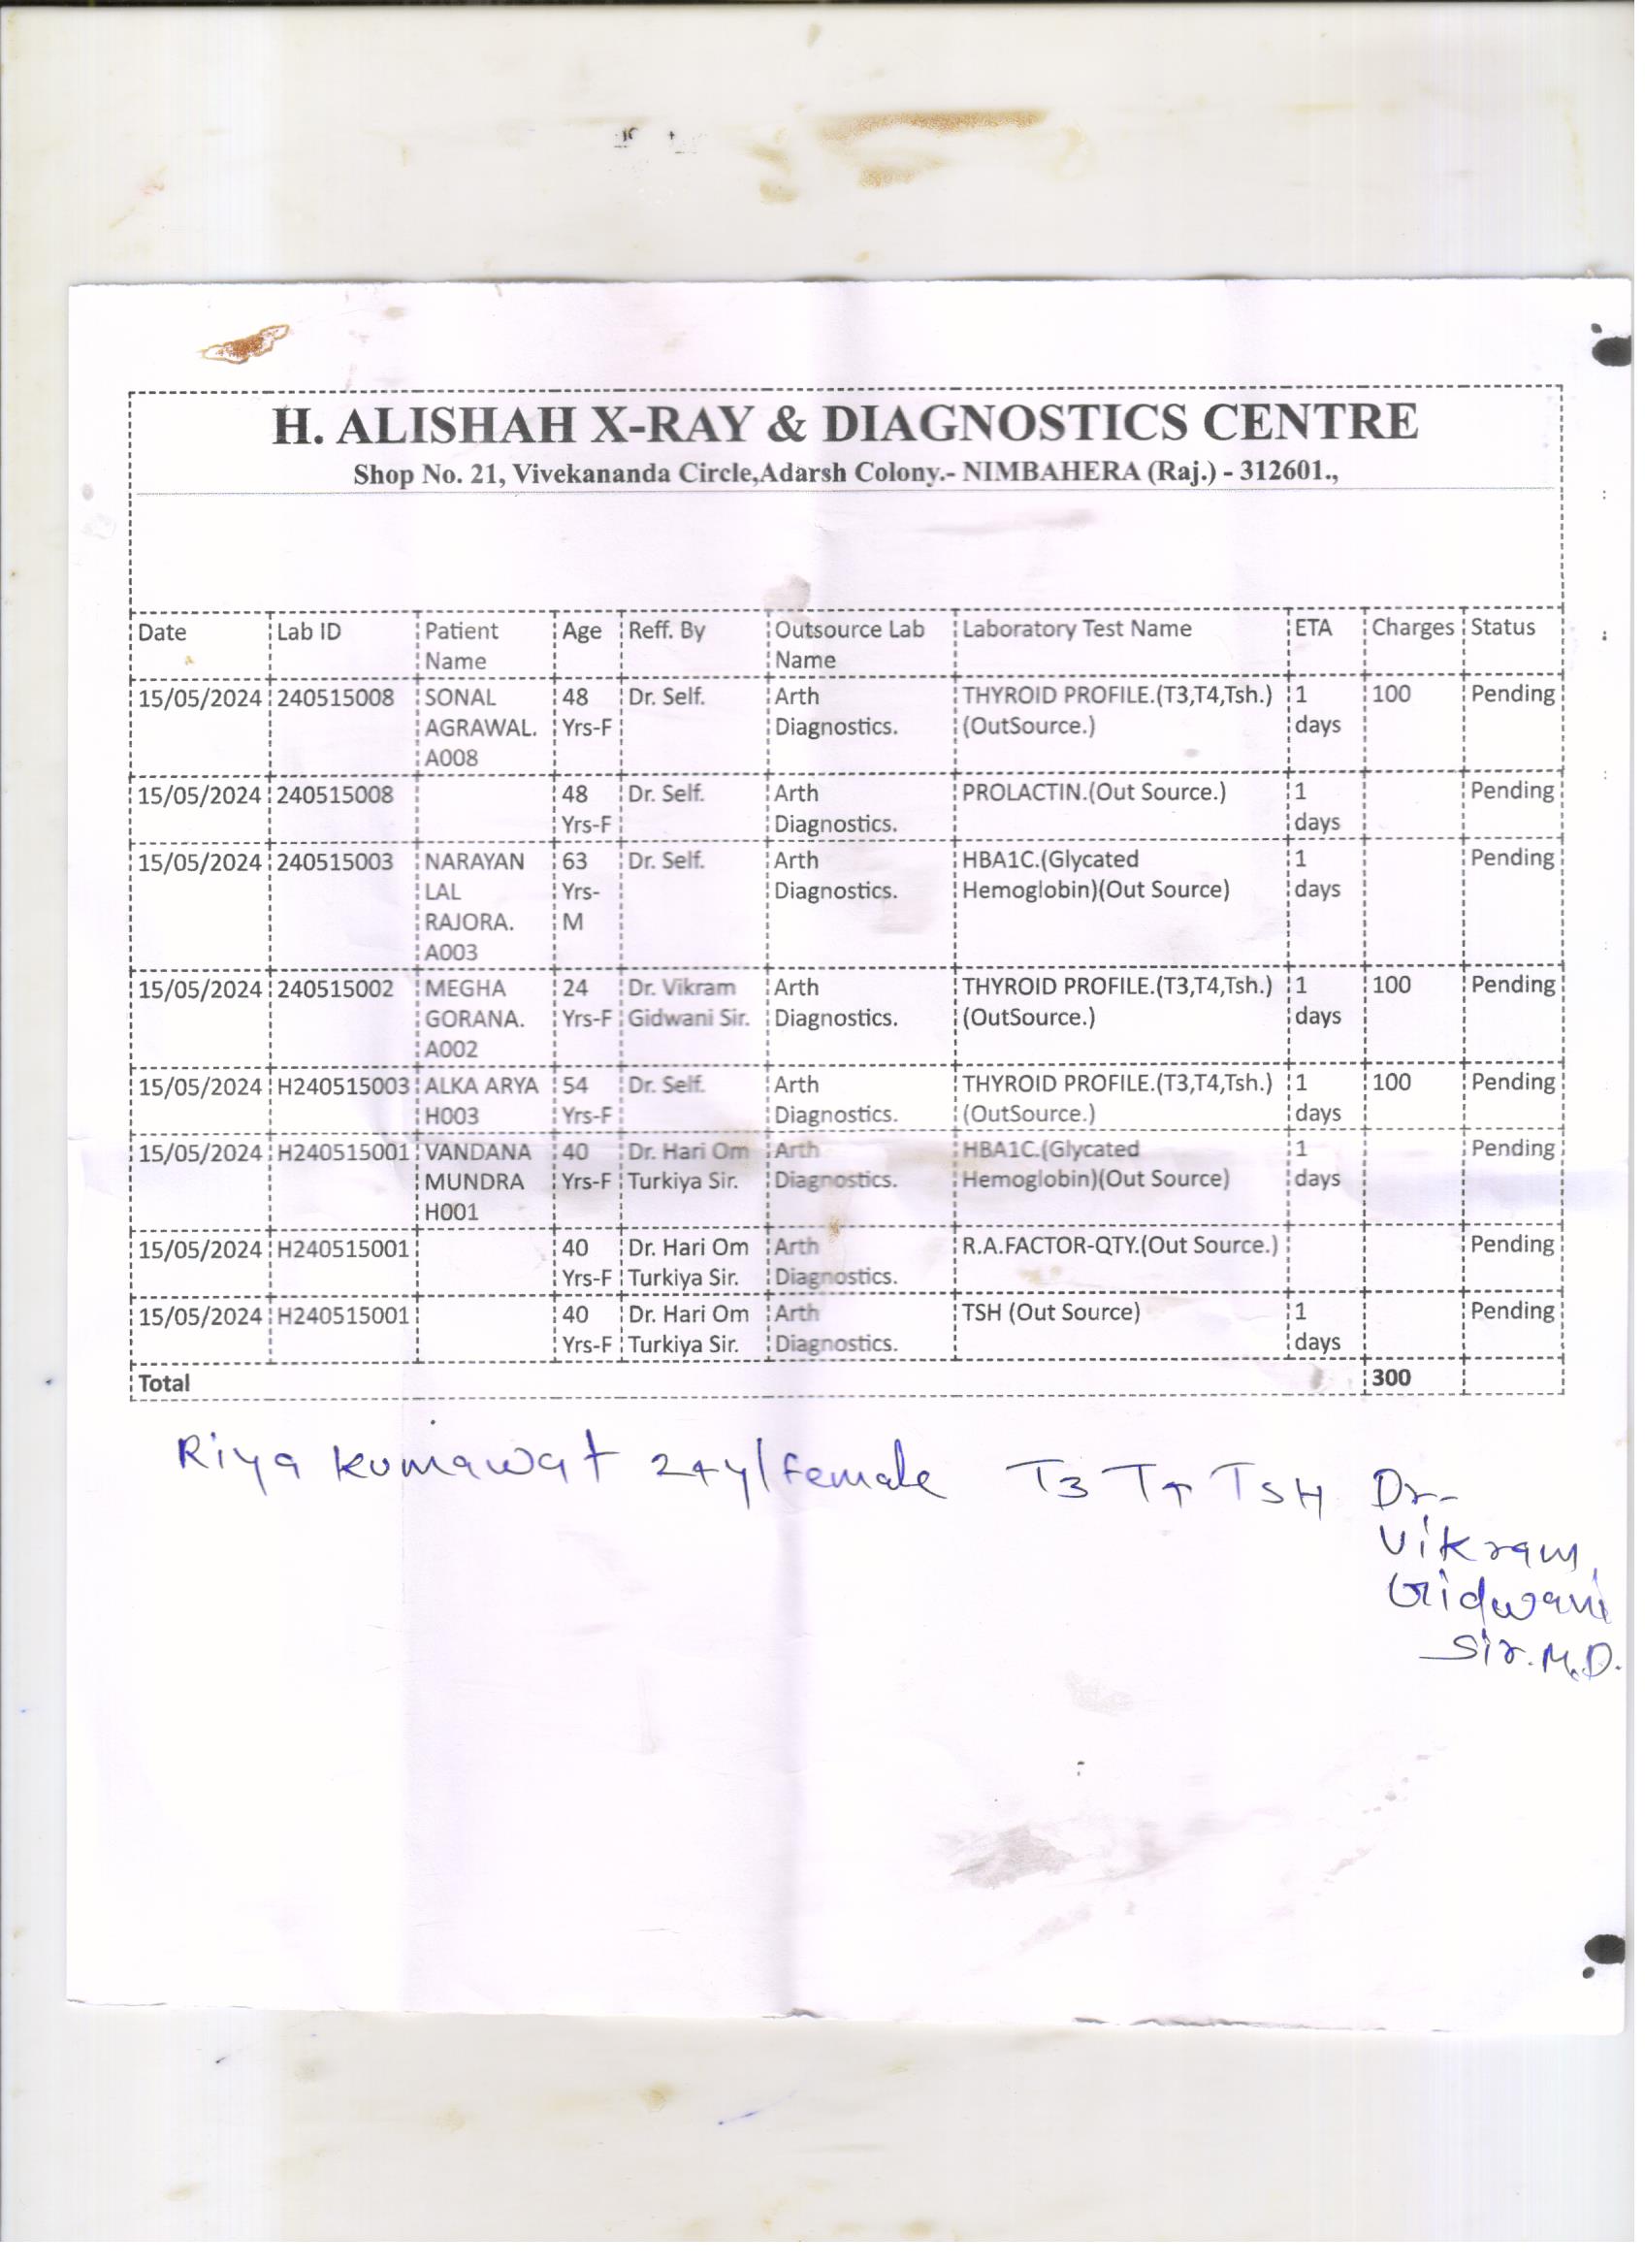 H. ALISHAH X-RAY & DIAGNOSTICS CENTRE
Shop No. 21, Vivekananda Circle,Adarsh Colony.- NIMBAHERA (Raj.) - 312601.,
Date Lab ID Patient Name Age Reff. By Outsource Lab Name Laboratory Test Name ETA Charges Status
15/05/2024 240515008 SONAL AGRAWAL. A008 48 Yrs-F Dr. Self. Arth Diagnostics. THYROID PROFILE.(T3,T4,Tsh.) (OutSource.) 1 days 100 Pending
15/05/2024 240515008 48 Yrs-F Dr. Self. Arth Diagnostics. PROLACTIN.(Out Source.) 1 days Pending
15/05/2024 240515003 NARAYAN LAL RAJORA. A003 63 Yrs-M Dr. Self. Arth Diagnostics. HBA1C.(Glycated Hemoglobin)(Out Source) 1 days Pending
15/05/2024 240515002 MEGHA GORANA. A002 24 Yrs-F Dr. Vikram Gidwani Sir. Arth Diagnostics. THYROID PROFILE.(T3,T4,Tsh.) (OutSource.) 1 days 100 Pending
15/05/2024 H240515003 ALKA ARYA H003 54 Yrs-F Dr. Self. Arth Diagnostics. THYROID PROFILE.(T3,T4,Tsh.) (OutSource.) 1 days 100 Pending
15/05/2024 H240515001 VANDANA MUNDRA H001 40 Yrs-F Dr. Hari Om Turkiya Sir. Arth Diagnostics. HBA1C.(Glycated Hemoglobin)(Out Source) 1 days Pending
15/05/2024 H240515001 40 Yrs-F Dr. Hari Om Turkiya Sir. Arth Diagnostics. R.A.FACTOR-QTY.(Out Source.) Pending
15/05/2024 H240515001 40 Yrs-F Dr. Hari Om Turkiya Sir. Arth Diagnostics. TSH (Out Source) 1 days Pending
Total 300
Riya Kumawat 24y/female T3 T4 TSH Dr-
Vikram
Gidwani
Sir. M.D.